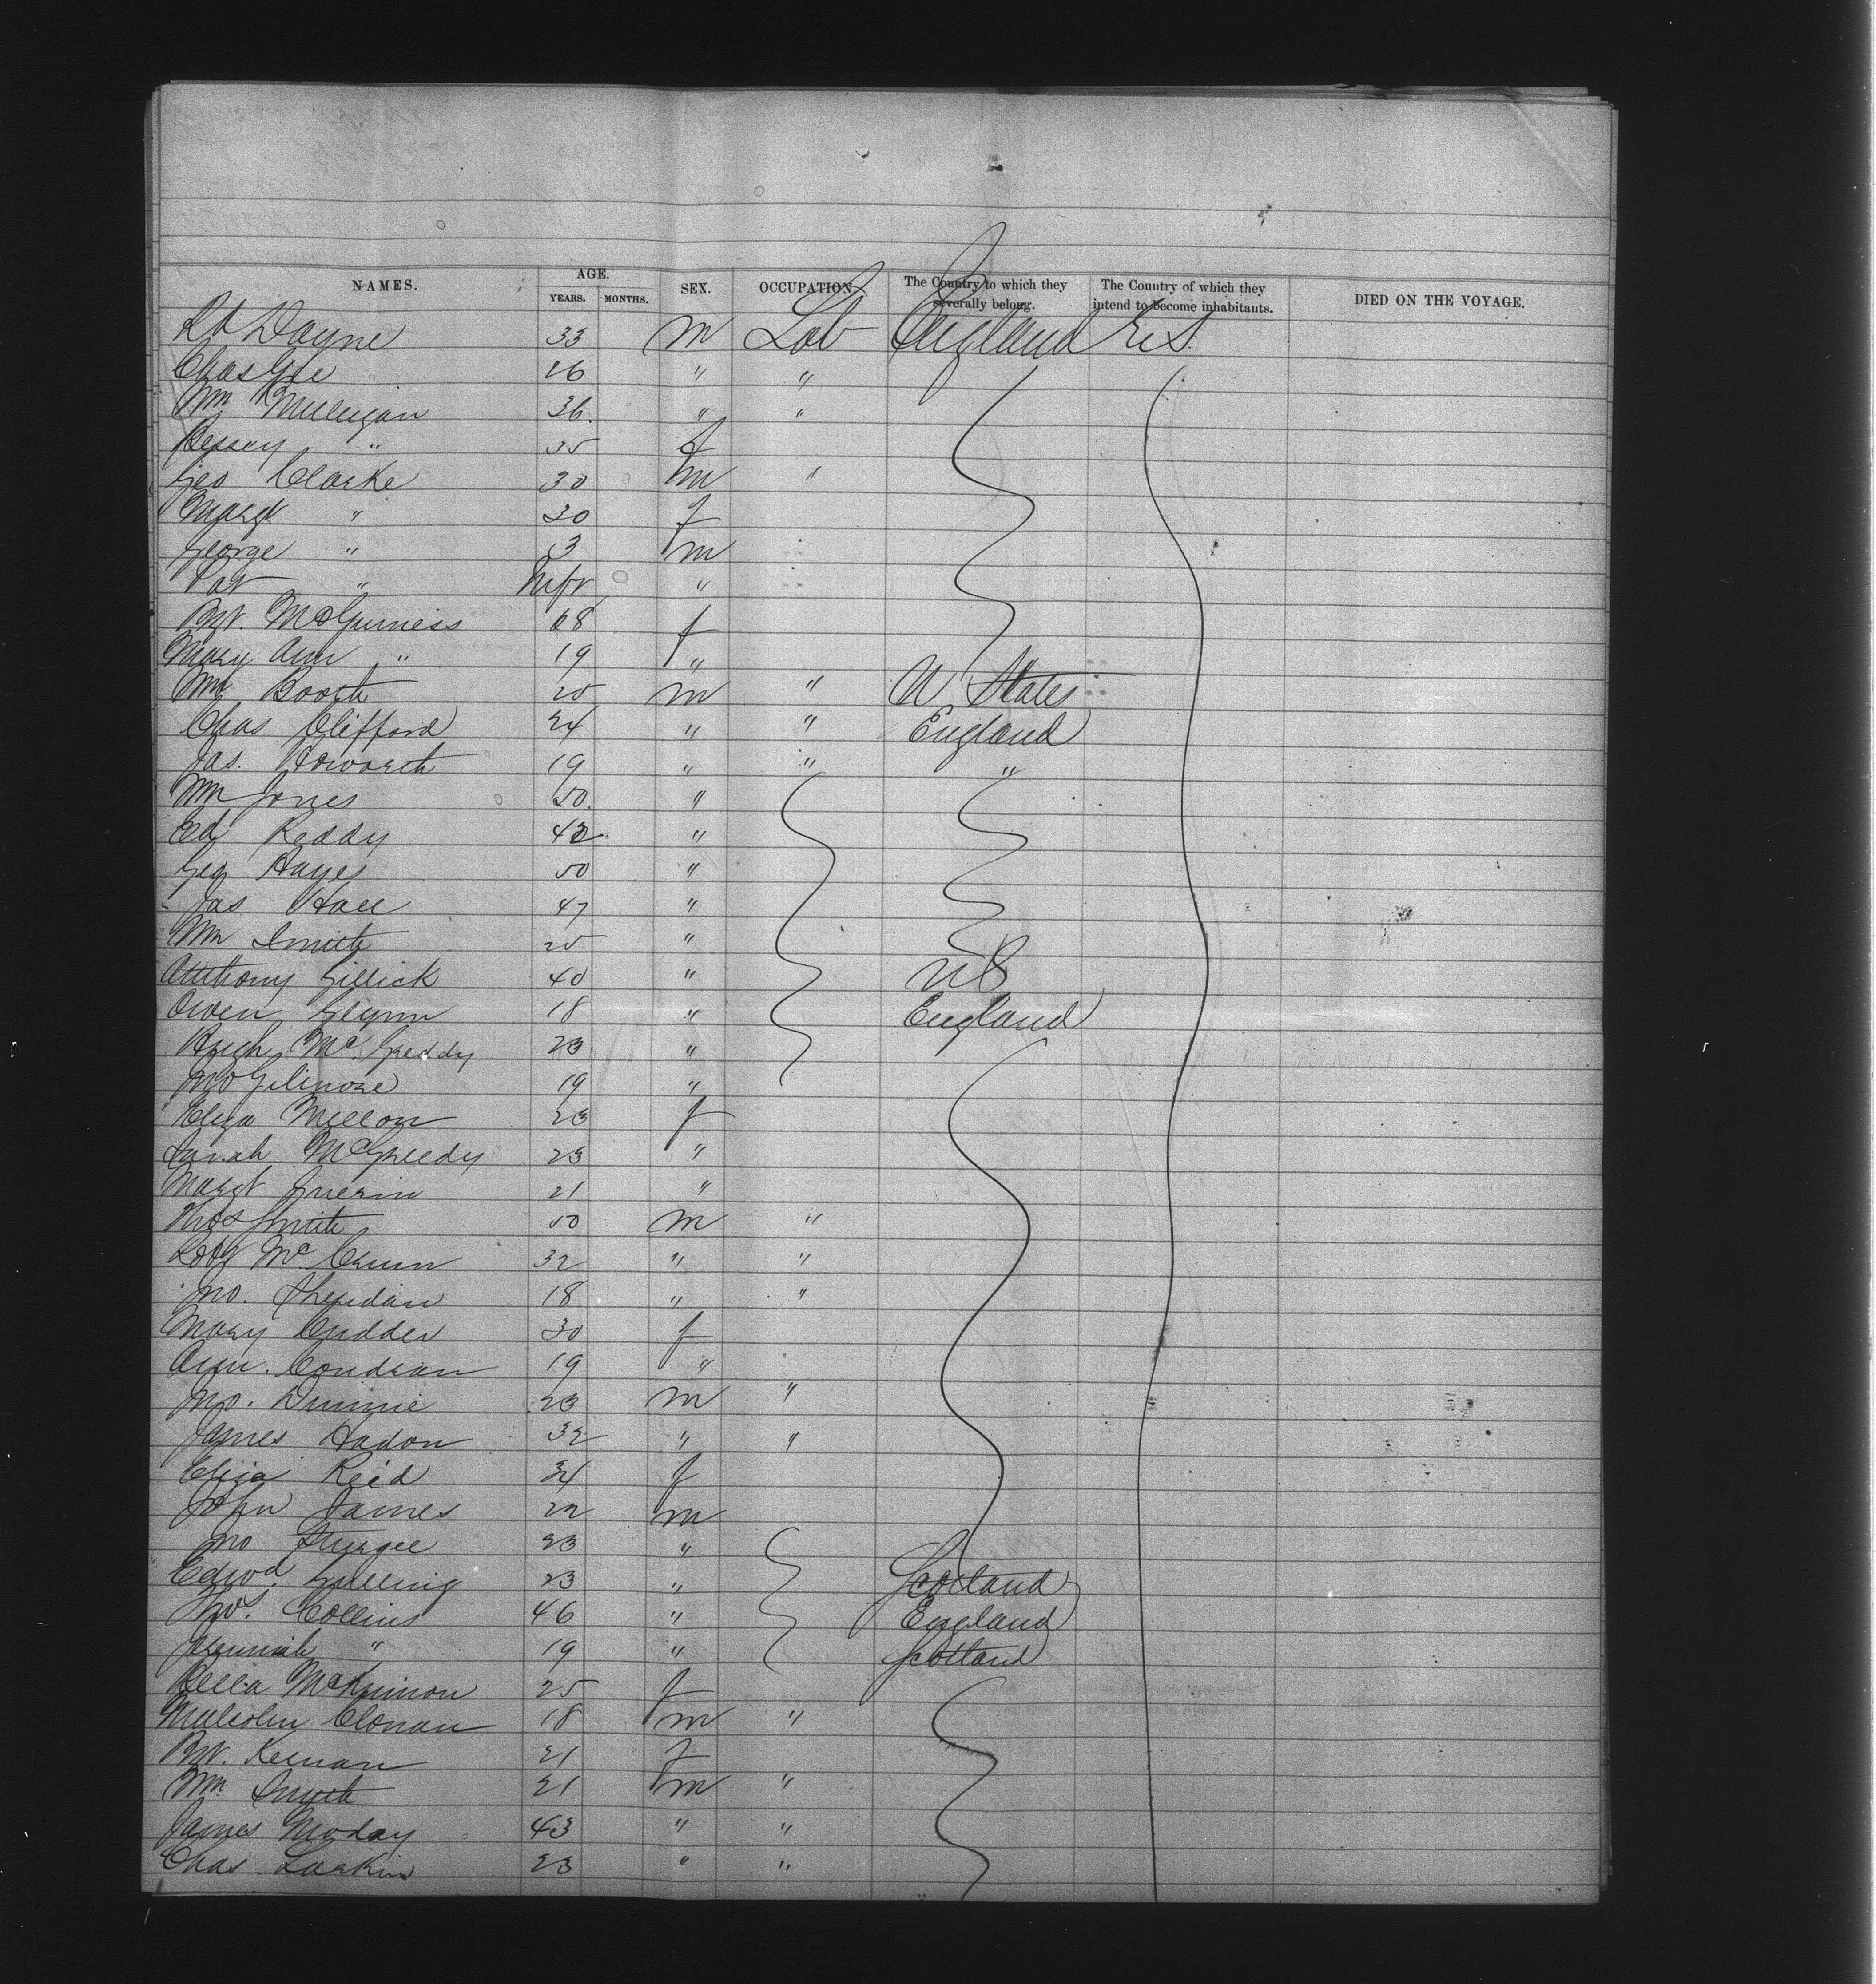 NAMES. AGE. YEARS. MONTHS. SEX. OCCUPATION The Country to which they severally belong. The Country of which they intend to become inhabitants. DIED ON THE VOYAGE.
Rd Dayne 33 m Lab England U.S.
Chas Gee 26 " "
Wm Mulligan 36. " "
Bessey " 35 f
Geo Clarke 30 m "
Margt " 30 f
George " 3 m
Pat " Infr "
Bgt. McGuiness 68 f
Mary Ann " 19 "
Wm Booth 25 m " U States
Chas Clifford 24 " " England
Jas. Howorth 19 " " "
Wm Jones 50. "
Ed Reddy 42 "
Geo Hayes 50 "
Jas Hall 47 "
Wm Smith 25 "
Anthony Gillick 40 " US
Owen Glynn 18 " England
Hugh Mc. Greddy 23 "
Jno Gilmore 19 "
Eliza Mellon 23 f
Sarah McGreedy 23 "
Margt Guerin 21 "
Thos Smith 50 m "
Robt Mc Crum 32 " "
Jno. Sheridan 18 " "
Mary Cudder 30 f
Ann. Condran 19 "
Jno. Dunnie 23 m "
James Hadon 32 " "
Eliza Reid 34 f
John James 22 m
Jno Sturgee 23 "
Edwd. Gulling 23 " Scotland
Thos. Collins 46 " England
Jeremiah " 19 " Scotland
Bella McKinnon 25 f
Malcolm Clonan 18 m "
Bgt. Keenan 21 f
Wm. Smith 21 m "
James Moday 43 " "
Chas. Larkin 23 " "